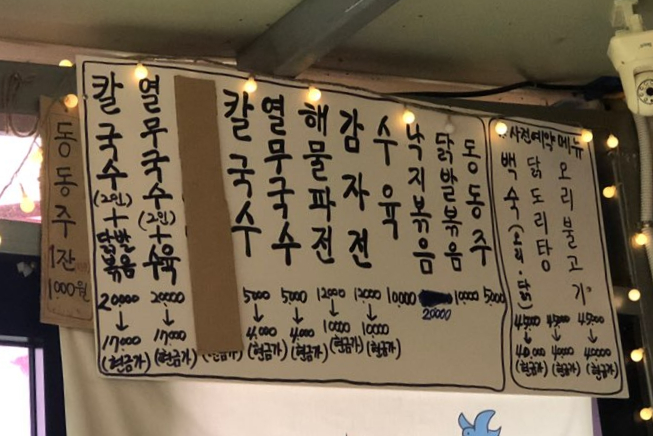 동동주
1잔
1000원
칼국수
(2인)
+
닭발
볶음
20000
↓
17000
(현금가)
열무국수
(2인)
+
수육
20000
↓
17000
(현금가)
칼국수
5000
↓
4,000
(현금가)
열무국수
5000
↓
4000
(현금가)
해물파전
12000
↓
10000
(현금가)
감자전
12000
↓
10000
(현금가)
수육
10,000
낙지볶음
20000
닭발볶음
10000
동동주
5000
사전예약 메뉴
백숙
(오리·닭)
45000
↓
40,000
(현금가)
닭도리탕
45000
↓
40000
(현금가)
오리불고기
45000
↓
40000
(현금가)